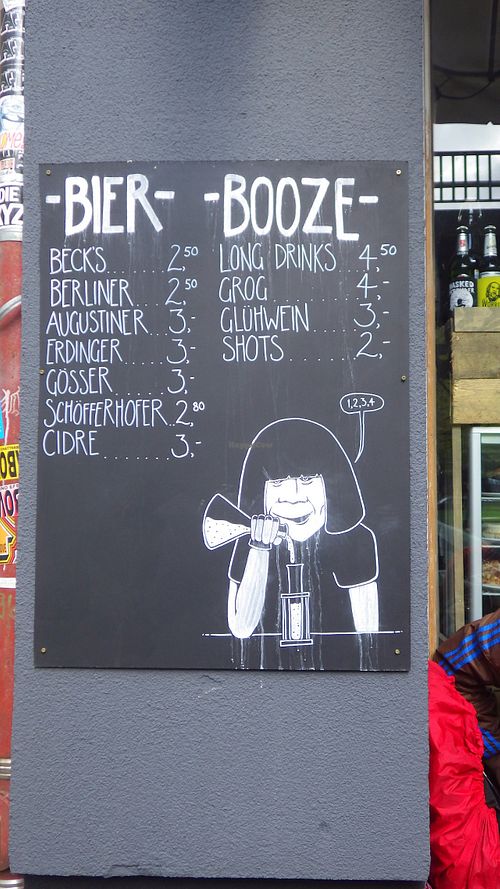 -BIER-
BECK'S........2,50
BERLINER.....2,50
AUGUSTINER...3,-
ERDINGER......3,-
GÖSSER........3,-
SCHÖFFERHOFER..2,80
CIDRE........3,-
-BOOZE-
LONG DRINKS...4,50
GROG..........4,-
GLÜHWEIN.....3,-
SHOTS.......2,-
1,2,3,4
DIE